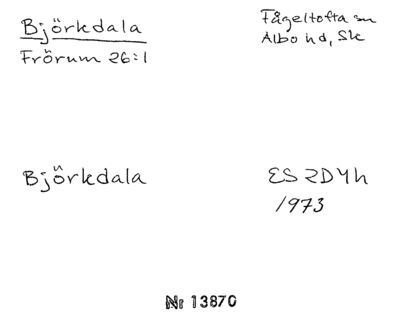 Björkdala
Frörum 26:1
Fågeltofta sn
Albo hd, Sk
Björkdala
ES 2D4h
1973
Nr 13870